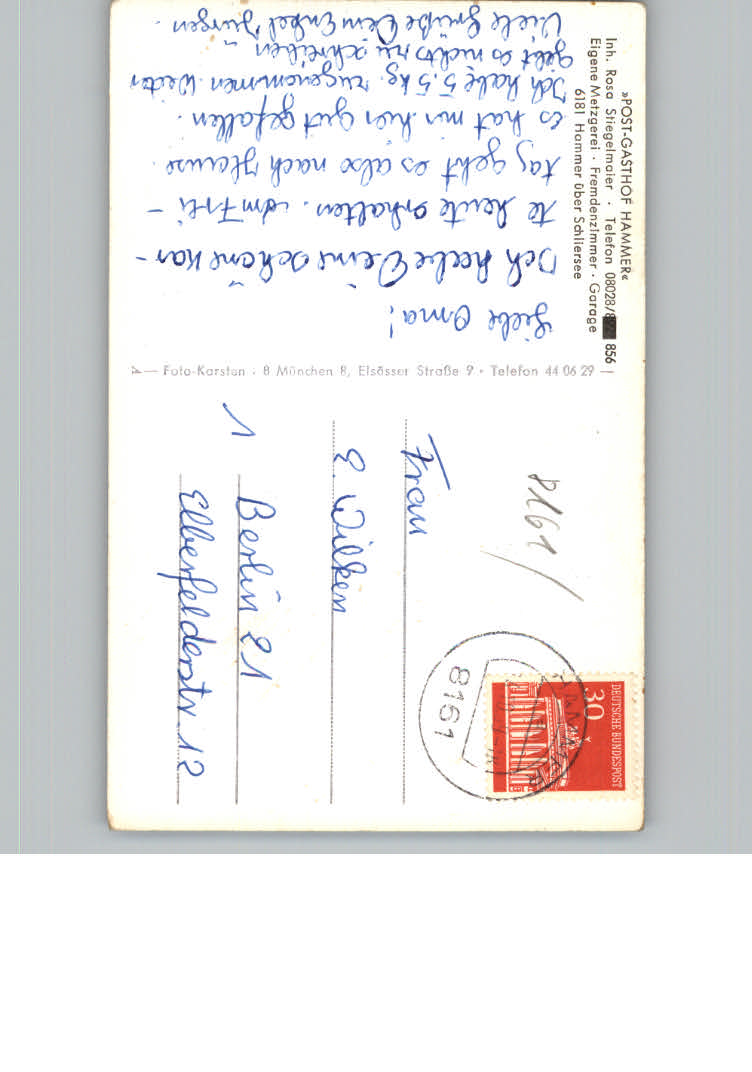 »POST-GASTHOF HAMMER«
Inh. Rosa Stiegelmaier · Telefon 08028/8 856
Eigene Metzgerei · Fremdenzimmer · Garage
6181 Hammer über Schliersee
Liebe Oma!
Ich habe Deine schöne Kar-
te heute erhalten. Am Frei-
tag geht es also nach Hause.
Es hat mir hier gut gefallen.
Ich habe 5.5 kg. zugenommen. Weiter
gibt es nichts zu schreiben
Viele Grüße Dein Enkel Jürgen.
Foto-Karstan · 8 München 8, Elsässer Straße 9 · Telefon 44 06 29
8161
DEUTSCHE BUNDESPOST
30
HAMMER
8161
Frau
E. Wilken
1 Berlin 21
Elberfelderstr 12